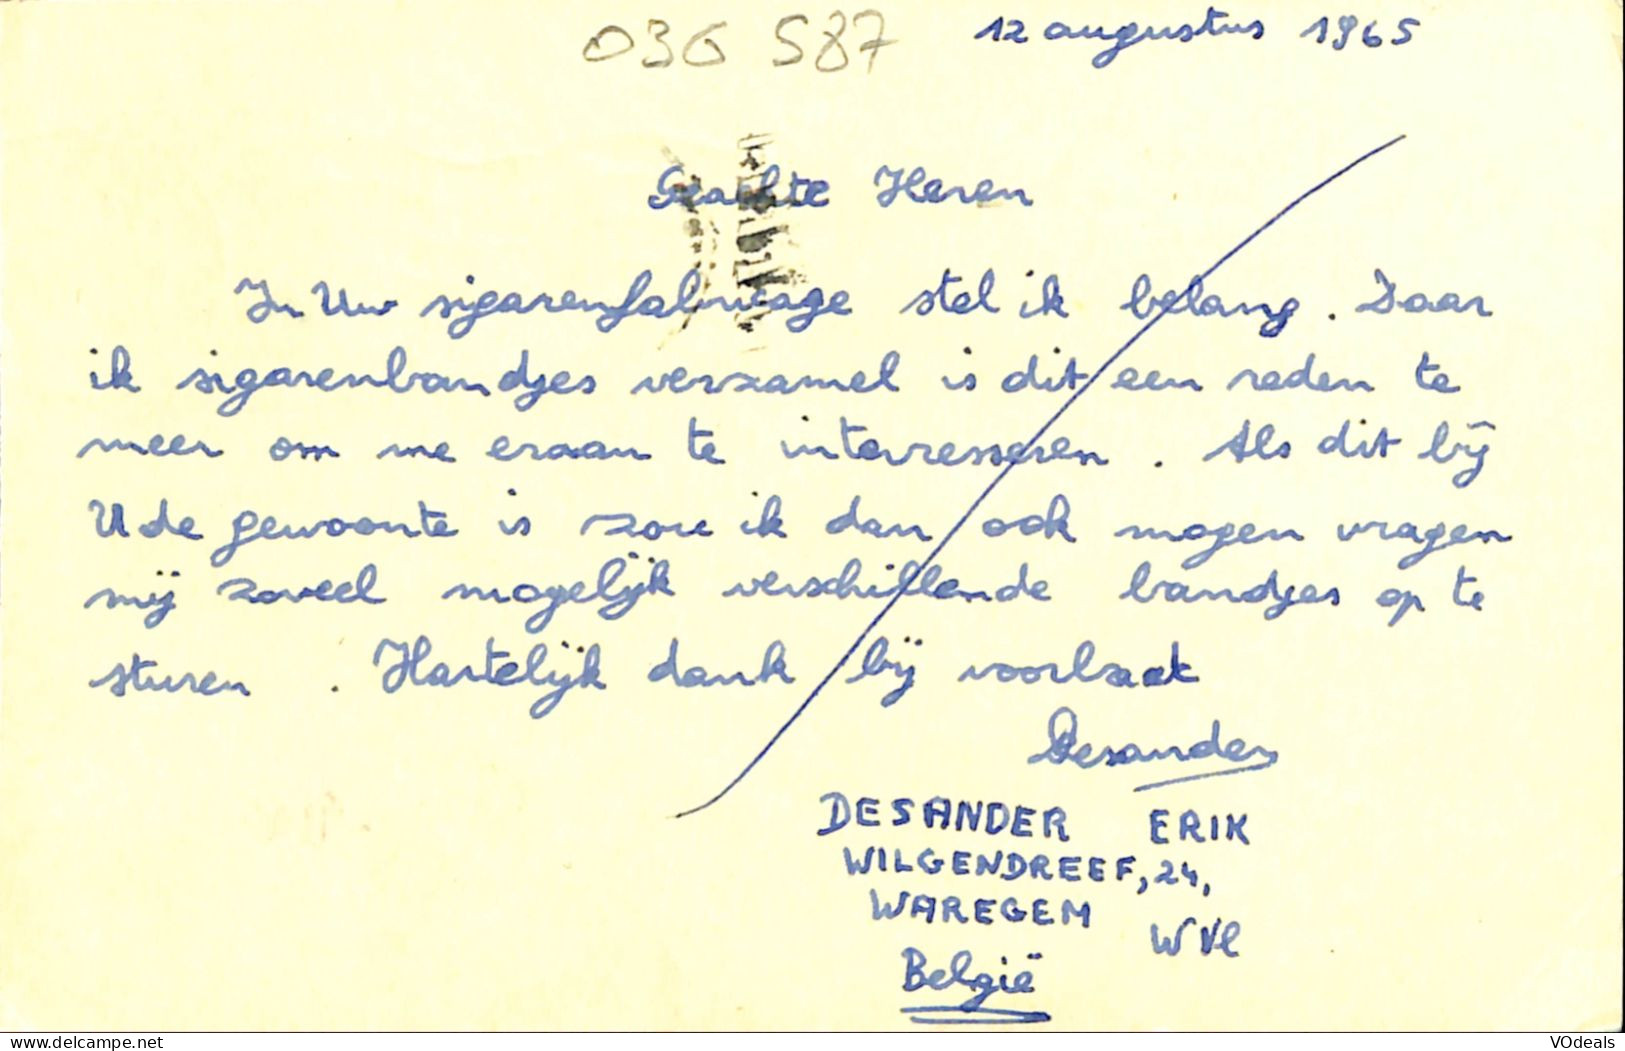 036 587
12 augustus 1965
Geachte Heren
In Uw sigarenfabricage stel ik belang. Daar
ik sigarenbandjes verzamel is dit een reden te
meer om me eraan te interresseren. Als dit bij
U de gewoonte is zou ik dan ook mogen vragen
mij zoveel mogelijk verschillende bandjes op te
sturen. Hartelijk dank bij voorbaat
Desander
DESANDER ERIK
WILGENDREEF, 24,
WAREGEM
WVl
België
www.delcampe.net
VOdeals